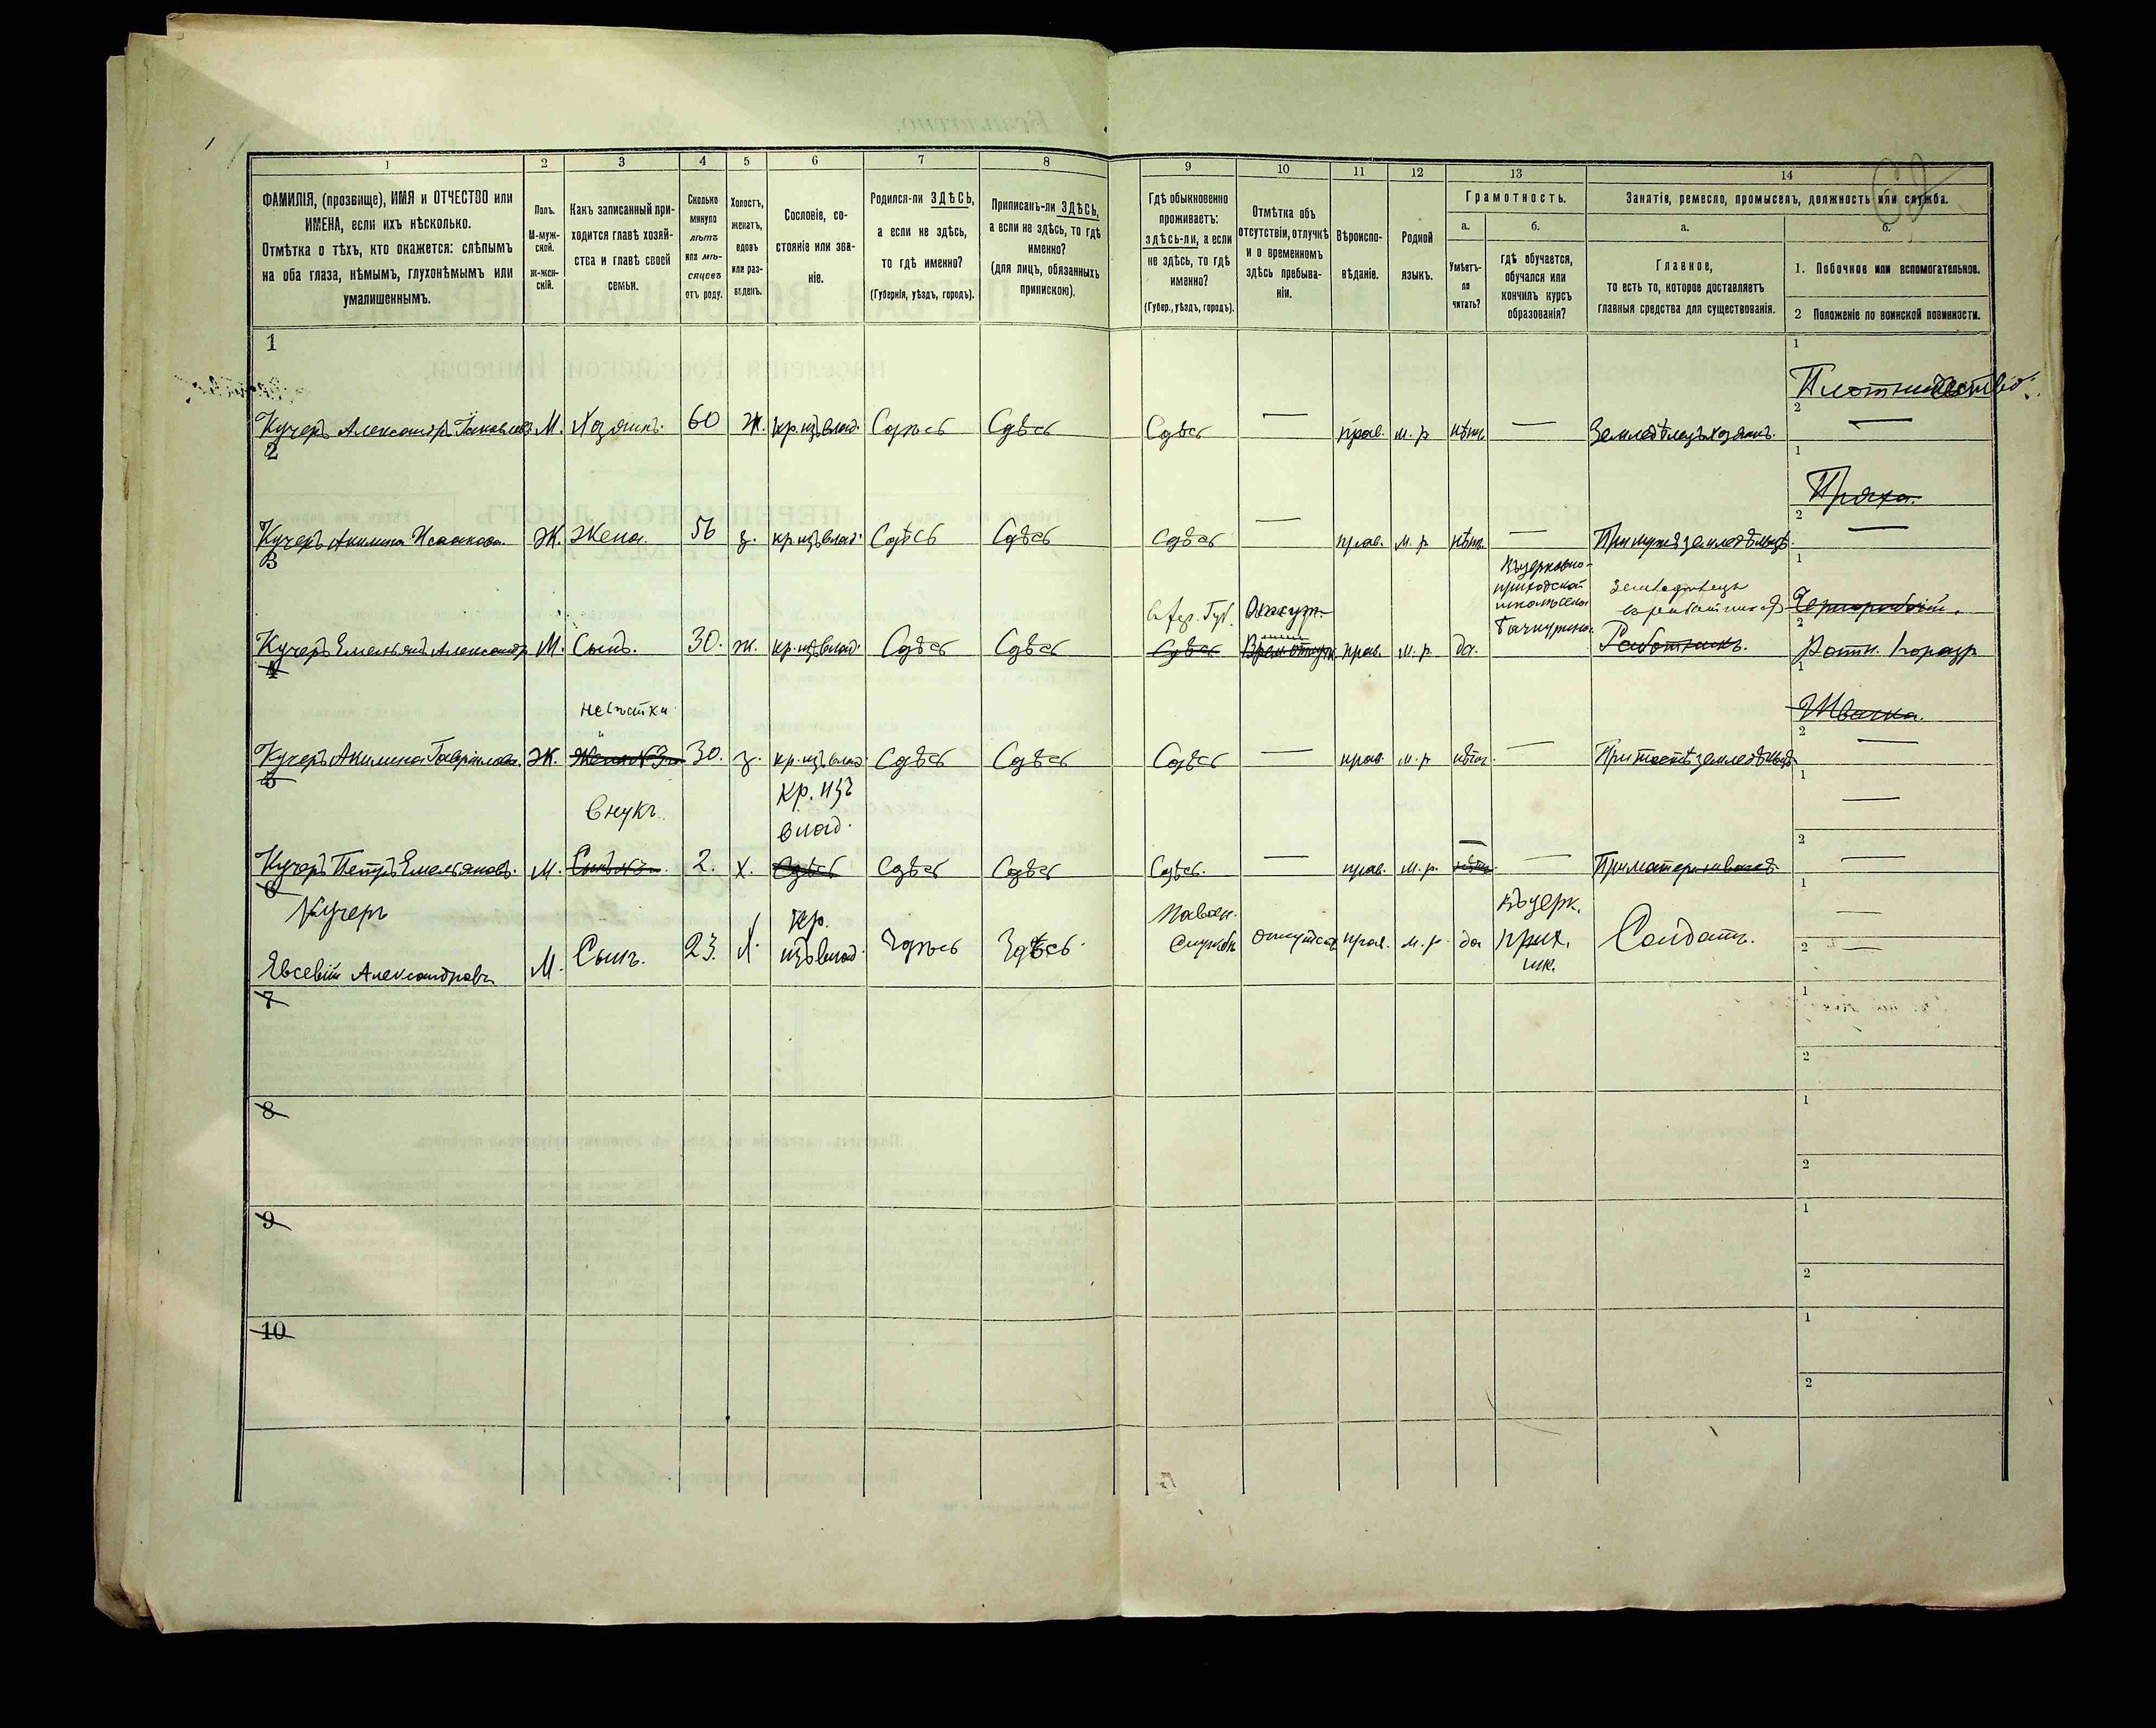 1 2 3 4 5 6 7 8 9 10 11 12 13 14
ФАМИЛІЯ, (прозвище), ИМЯ и ОТЧЕСТВО или
ИМЕНА, если ихъ нѣсколько.
Отмѣтка о тѣхъ, кто окажется: слѣпымъ
на оба глаза, нѣмымъ, глухонѣмымъ или
умалишеннымъ.
Полъ.
М-муж-
ской.
Ж-жен-
скій.
Какъ записанный при-
ходится главѣ хозяй-
ства и главѣ своей
семьи.
Сколько
минуло
лѣтъ
или мѣ-
сяцевъ
отъ роду.
Холостъ,
женатъ,
вдовъ
или раз-
веденъ.
Сословіе, со-
стояніе или зва-
ніе.
Родился-ли ЗДѢСЬ,
а если не здѣсь,
то гдѣ именно?
(Губернія, уѣздъ, городъ).
Приписанъ-ли ЗДѢСЬ,
а если не здѣсь, то гдѣ
именно?
(для лицъ, обязанныхъ
припискою).
Гдѣ обыкновенно
проживаетъ:
здѣсь-ли, а если
не здѣсь, то гдѣ
именно?
(Губер., уѣздъ, городъ).
Отмѣтка объ
отсутствіи, отлучкѣ
и о временномъ
здѣсь пребыва-
ніи.
Вѣроиспо-
вѣданіе.
Родной
языкъ.
Грамотность.
а.
Умѣетъ-
ли
читать?
б.
гдѣ обучается,
обучался или
кончилъ курсъ
образованія?
Занятія, ремесло, промыселъ, должность или служба.
а.
Главное,
то есть то, которое доставляетъ
главныя средства для существованія.
б.
1. Побочное или вспомогательное.
2 Положеніе по воинской повинности.
1
1
2
Кучеръ Александръ Яковлевъ М. Хозяинъ. 60 ж. кр. изъ влад. Сдѣсь Сдѣсь Сдѣсь — прав. м. р нѣтъ — Земледѣлецъ хозяинъ. —
2
1
Пряха.
2
Кучеръ Акилина Исаакова. Ж. Жена. 56 з. кр изъ влад. Сдѣсь Сдѣсь Сдѣсь — прав. м. р нѣтъ — При мужѣ земледѣльцѣ. —
3
1
Въ церковно-
приходской
школѣ села
Земледѣлецъ
Чернорабочій.
2
Кучеръ Емельянъ Александр М. Сынъ. 30. ж. кр. изъ влад. Сдѣсь Сдѣсь Сдѣсь прав. м. р. да. Работникъ.
4
1
невѣстка
Швачка.
2
Кучеръ Акилина Гавріилова. Ж. Жена №3 30. з. кр. изъ влад Сдѣсь Сдѣсь Сдѣсь — прав. м. р нѣтъ —
5
1
Внукъ.
кр. изъ
влад.
—
2
Кучеръ Петръ Емельяновъ. М. 2. х. Сдѣсь Сдѣсь Сдѣсь Сдѣсь. — прав. м. р. — —
6
1
Кучеръ
Евсевій Александровъ М. Сынъ. 23. Х.
кр.
изъ влад.
Здѣсь Здѣсь.
На воен.
службѣ
отсутств прав. м. р. да
Въ церк.
прих.
шк.
Солдатъ.
—
2 —
7
1
2
8
1
2
9
1
2
10
1
2